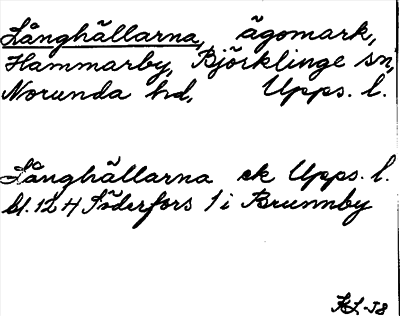 Långhällarna, ägomark,
Hammarby, Björklinge sn,
Norunda hd, Upps. l.
Långhällarna ek Upps. l.
bl. 12 H Söderfors 1 i Brunnby
HL-58